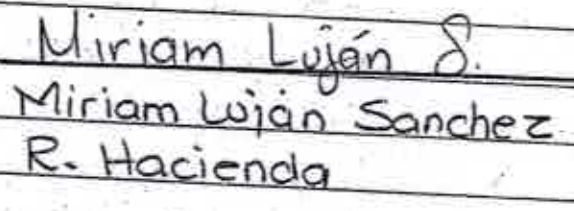 Miriam Luján S.
Miriam Luján Sanchez
R. Hacienda